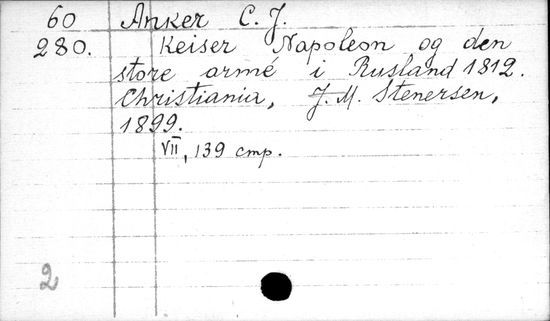 60 Anker C. J.
280. Keiser Napoleon og den
store armé i Rusland 1812.
Christiania, J. M. Stenersen,
1899.
VII, 139 стр.
2